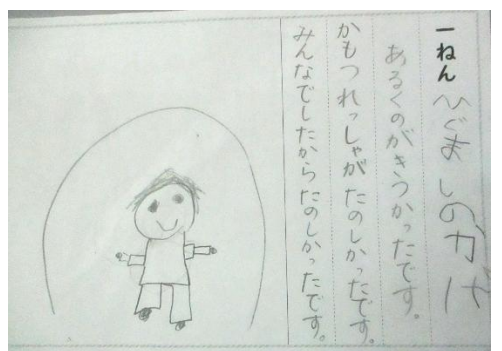 一ねん ひぐま
あるくのがきつかったです。
かもつれっしゃがたのしかったです。
みんなでしたからたのしかったです。